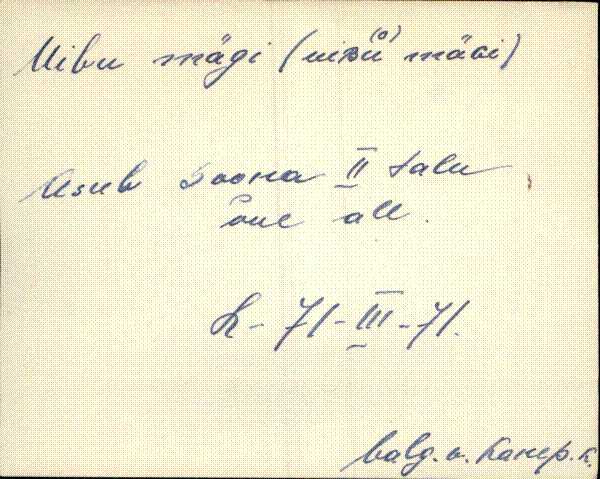 Uibu mägi (uiʙü(ö) mäɢi)
Asub Soona II talu
õue all.
L-71-III-71.
Valg. v. Kanep. k.